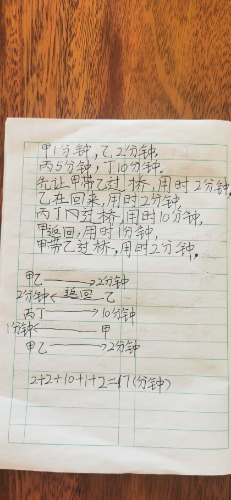 甲1分钟,乙2分钟,
丙5分钟,丁10分钟。
先让甲带乙过桥,用时2分钟,
乙在回来,用时2分钟,
丙丁过桥,用时10分钟,
甲返回,用时1分钟,
甲带乙过桥,用时2分钟。
甲乙→2分钟
2分钟←返回 乙
丙丁→10分钟
1分钟←甲
甲乙→2分钟
2+2+10+1+2=17(分钟)